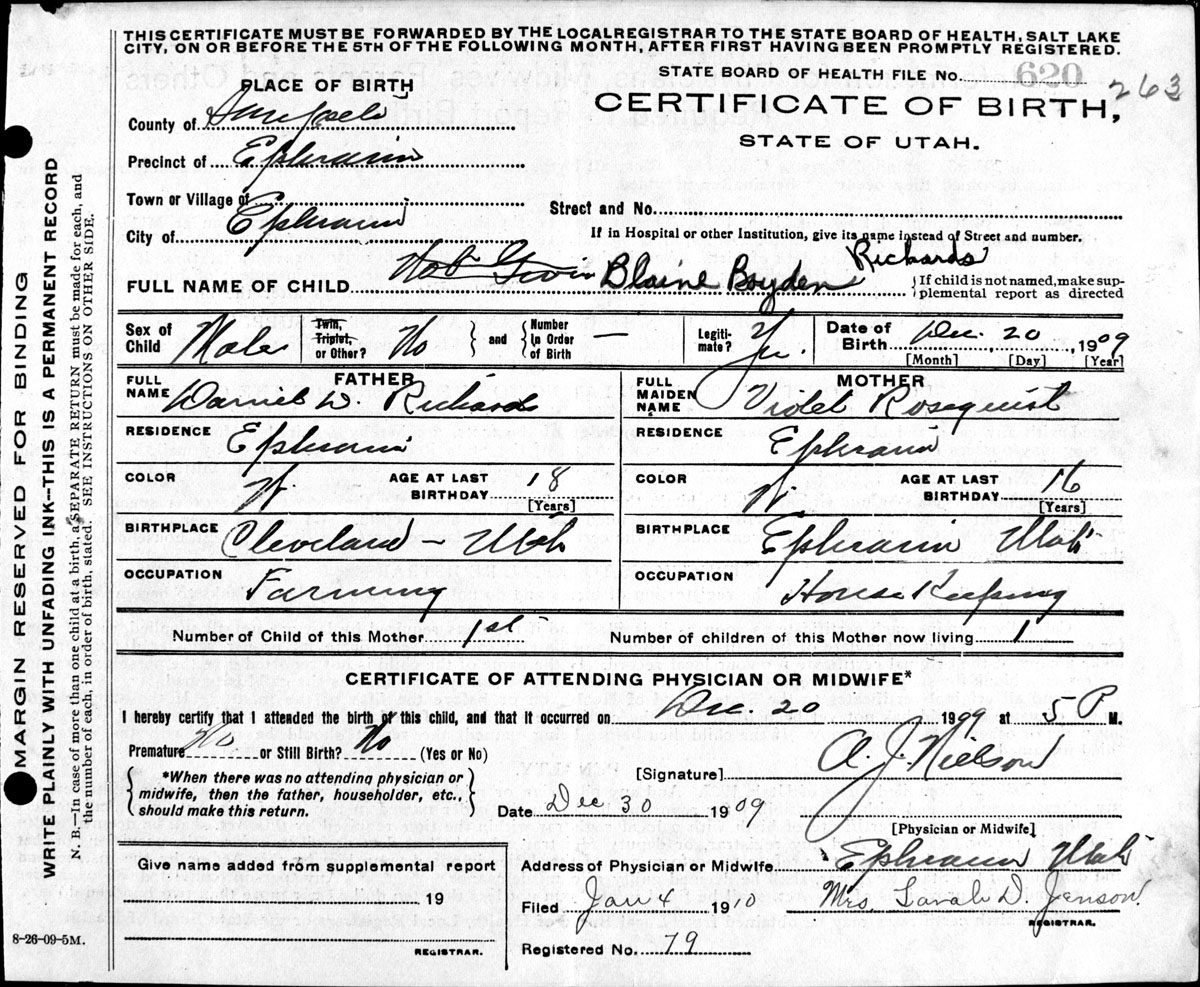 THIS CERTIFICATE MUST BE FORWARDED BY THE LOCALREGISTRAR TO THE STATE BOARD OF HEALTH, SALT LAKE
CITY, ON OR BEFORE THE 5TH OF THE FOLLOWING MONTH, AFTER FIRST HAVING BEEN PROMPTLY REGISTERED.
STATE BOARD OF HEALTH FILE No. 620 263
PLACE OF BIRTH
CERTIFICATE OF BIRTH,
STATE OF UTAH.
County of Sanpete
Precinct of Ephraim
Town or Village of
City of Ephraim
Street and No.
If in Hospital or other Institution, give its name instead of Street and number.
FULL NAME OF CHILD Not Given Blaine Boyden Richards
If child is not named, make sup-
plemental report as directed
Sex of Child Male
Twin, Triplet, or Other? No
and Number in Order of Birth —
Legiti-mate? Yes.
Date of Birth Dec. 20, 1909
[Month] [Day] [Year]
FATHER
FULL NAME Daniel W. Richards
RESIDENCE Ephraim
COLOR W.
AGE AT LAST BIRTHDAY 18
[Years]
BIRTHPLACE Cleveland - Utah
OCCUPATION Farming
MOTHER
FULL MAIDEN NAME Violet Rosequist
RESIDENCE Ephraim
COLOR W.
AGE AT LAST BIRTHDAY 16
[Years]
BIRTHPLACE Ephraim Utah
OCCUPATION House Keeping
Number of Child of this Mother 1st
Number of children of this Mother now living 1
CERTIFICATE OF ATTENDING PHYSICIAN OR MIDWIFE*
I hereby certify that I attended the birth of this child, and that it occurred on Dec. 20 1909 at 5 P M.
Premature No or Still Birth? No (Yes or No)
*When there was no attending physician or
midwife, then the father, householder, etc.,
should make this return.
[Signature] A. J. Nielson
Date Dec 30 1909
[Physician or Midwife]
Give name added from supplemental report
19
REGISTRAR.
Address of Physician or Midwife Ephraim Utah
Filed Jan 4 1910 Mrs Sarah D. Jenson.
REGISTRAR.
Registered No. 79
8-26-09-5M.
MARGIN RESERVED FOR BINDING
WRITE PLAINLY WITH UNFADING INK--THIS IS A PERMANENT RECORD
N. B.—In case of more than one child at a birth, a SEPARATE RETURN must be made for each, and
the number of each, in order of birth, stated. SEE INSTRUCTIONS ON OTHER SIDE.